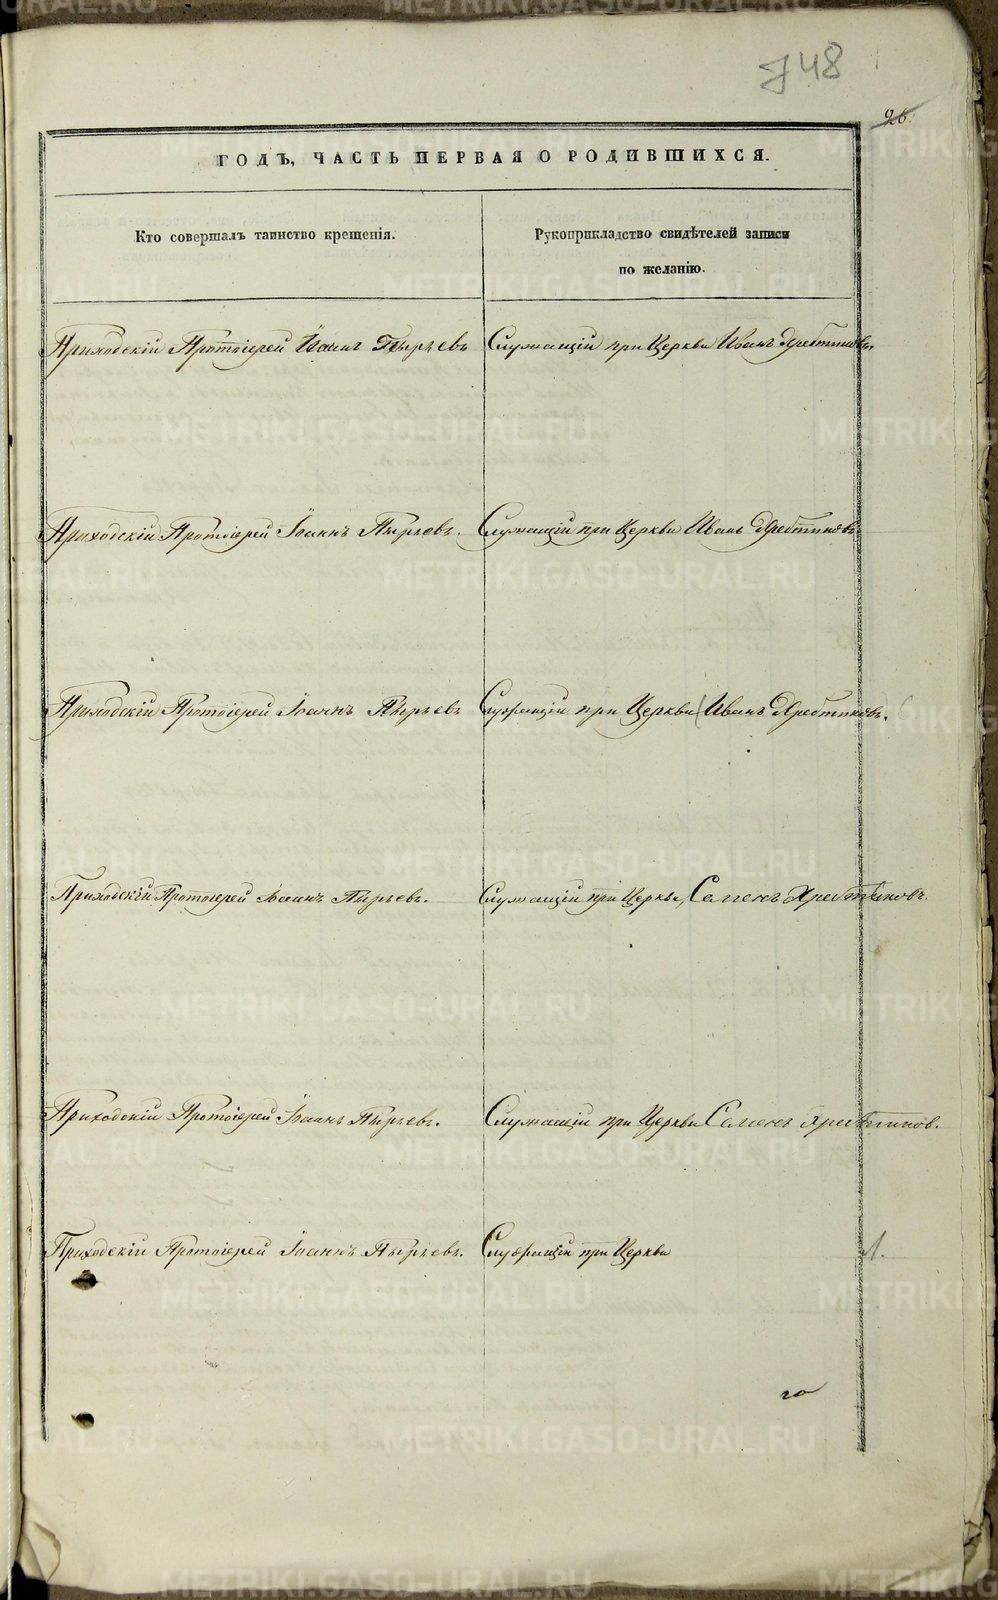 748
26.
ГОДЪ, ЧАСТЬ ПЕРВАЯ О РОДИВШИХСЯ.
Кто совершалъ таинство крещенія.
Рукоприкладство свидѣтелей записи
по желанію.
Приходскій Протоіерей Іоаннъ Пырьевъ
Служащій при Церкви Иванъ Хребтиковъ.
Приходскій Протоіерей Іоаннъ Пырьевъ.
Служащій при Церкви Иванъ Хребтиковъ
Приходскій Протоіерей Іоаннъ Пырьевъ
Служащій при Церкви Иванъ Хребтиковъ.
Приходскій Протоіерей Іоаннъ Пырьевъ.
Служащій при Церкви, Семенъ Хребтиковъ.
Приходскій Протоіерей Іоаннъ Пырьевъ.
Служащій при Церкви Семенъ Хребтиков.
Приходскій Протоіерей Іоаннъ Пырьевъ.
Служащій при Церкви
го
METRIKI.GASO-URAL.RU